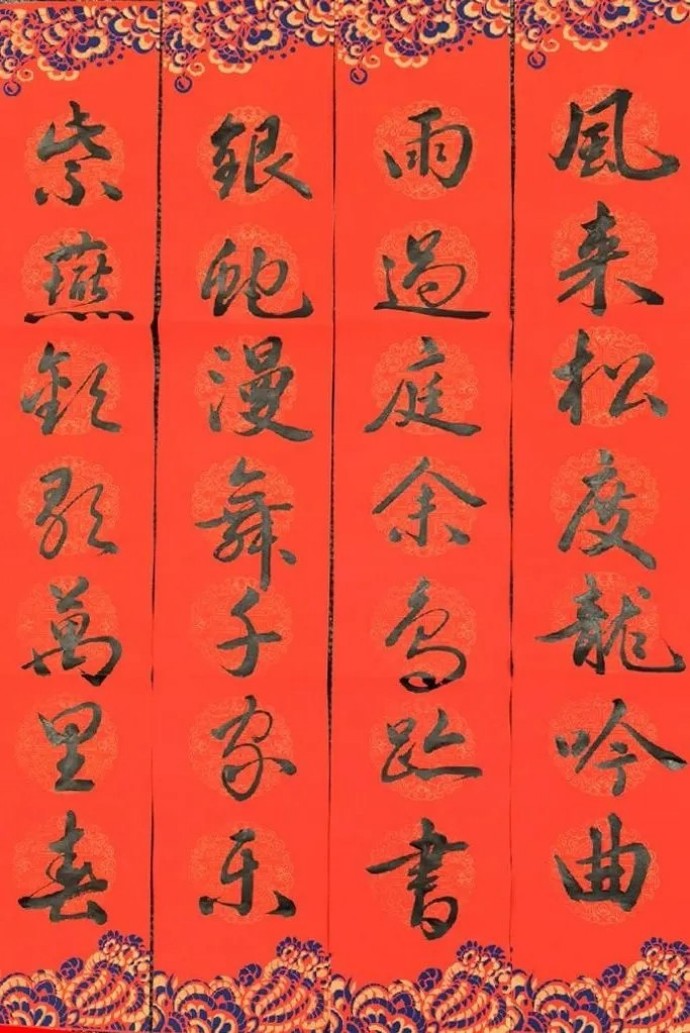 風来松度龍吟曲
雨過庭余鳥趾書
銀蛇漫舞千家乐
紫燕歡歌萬里春